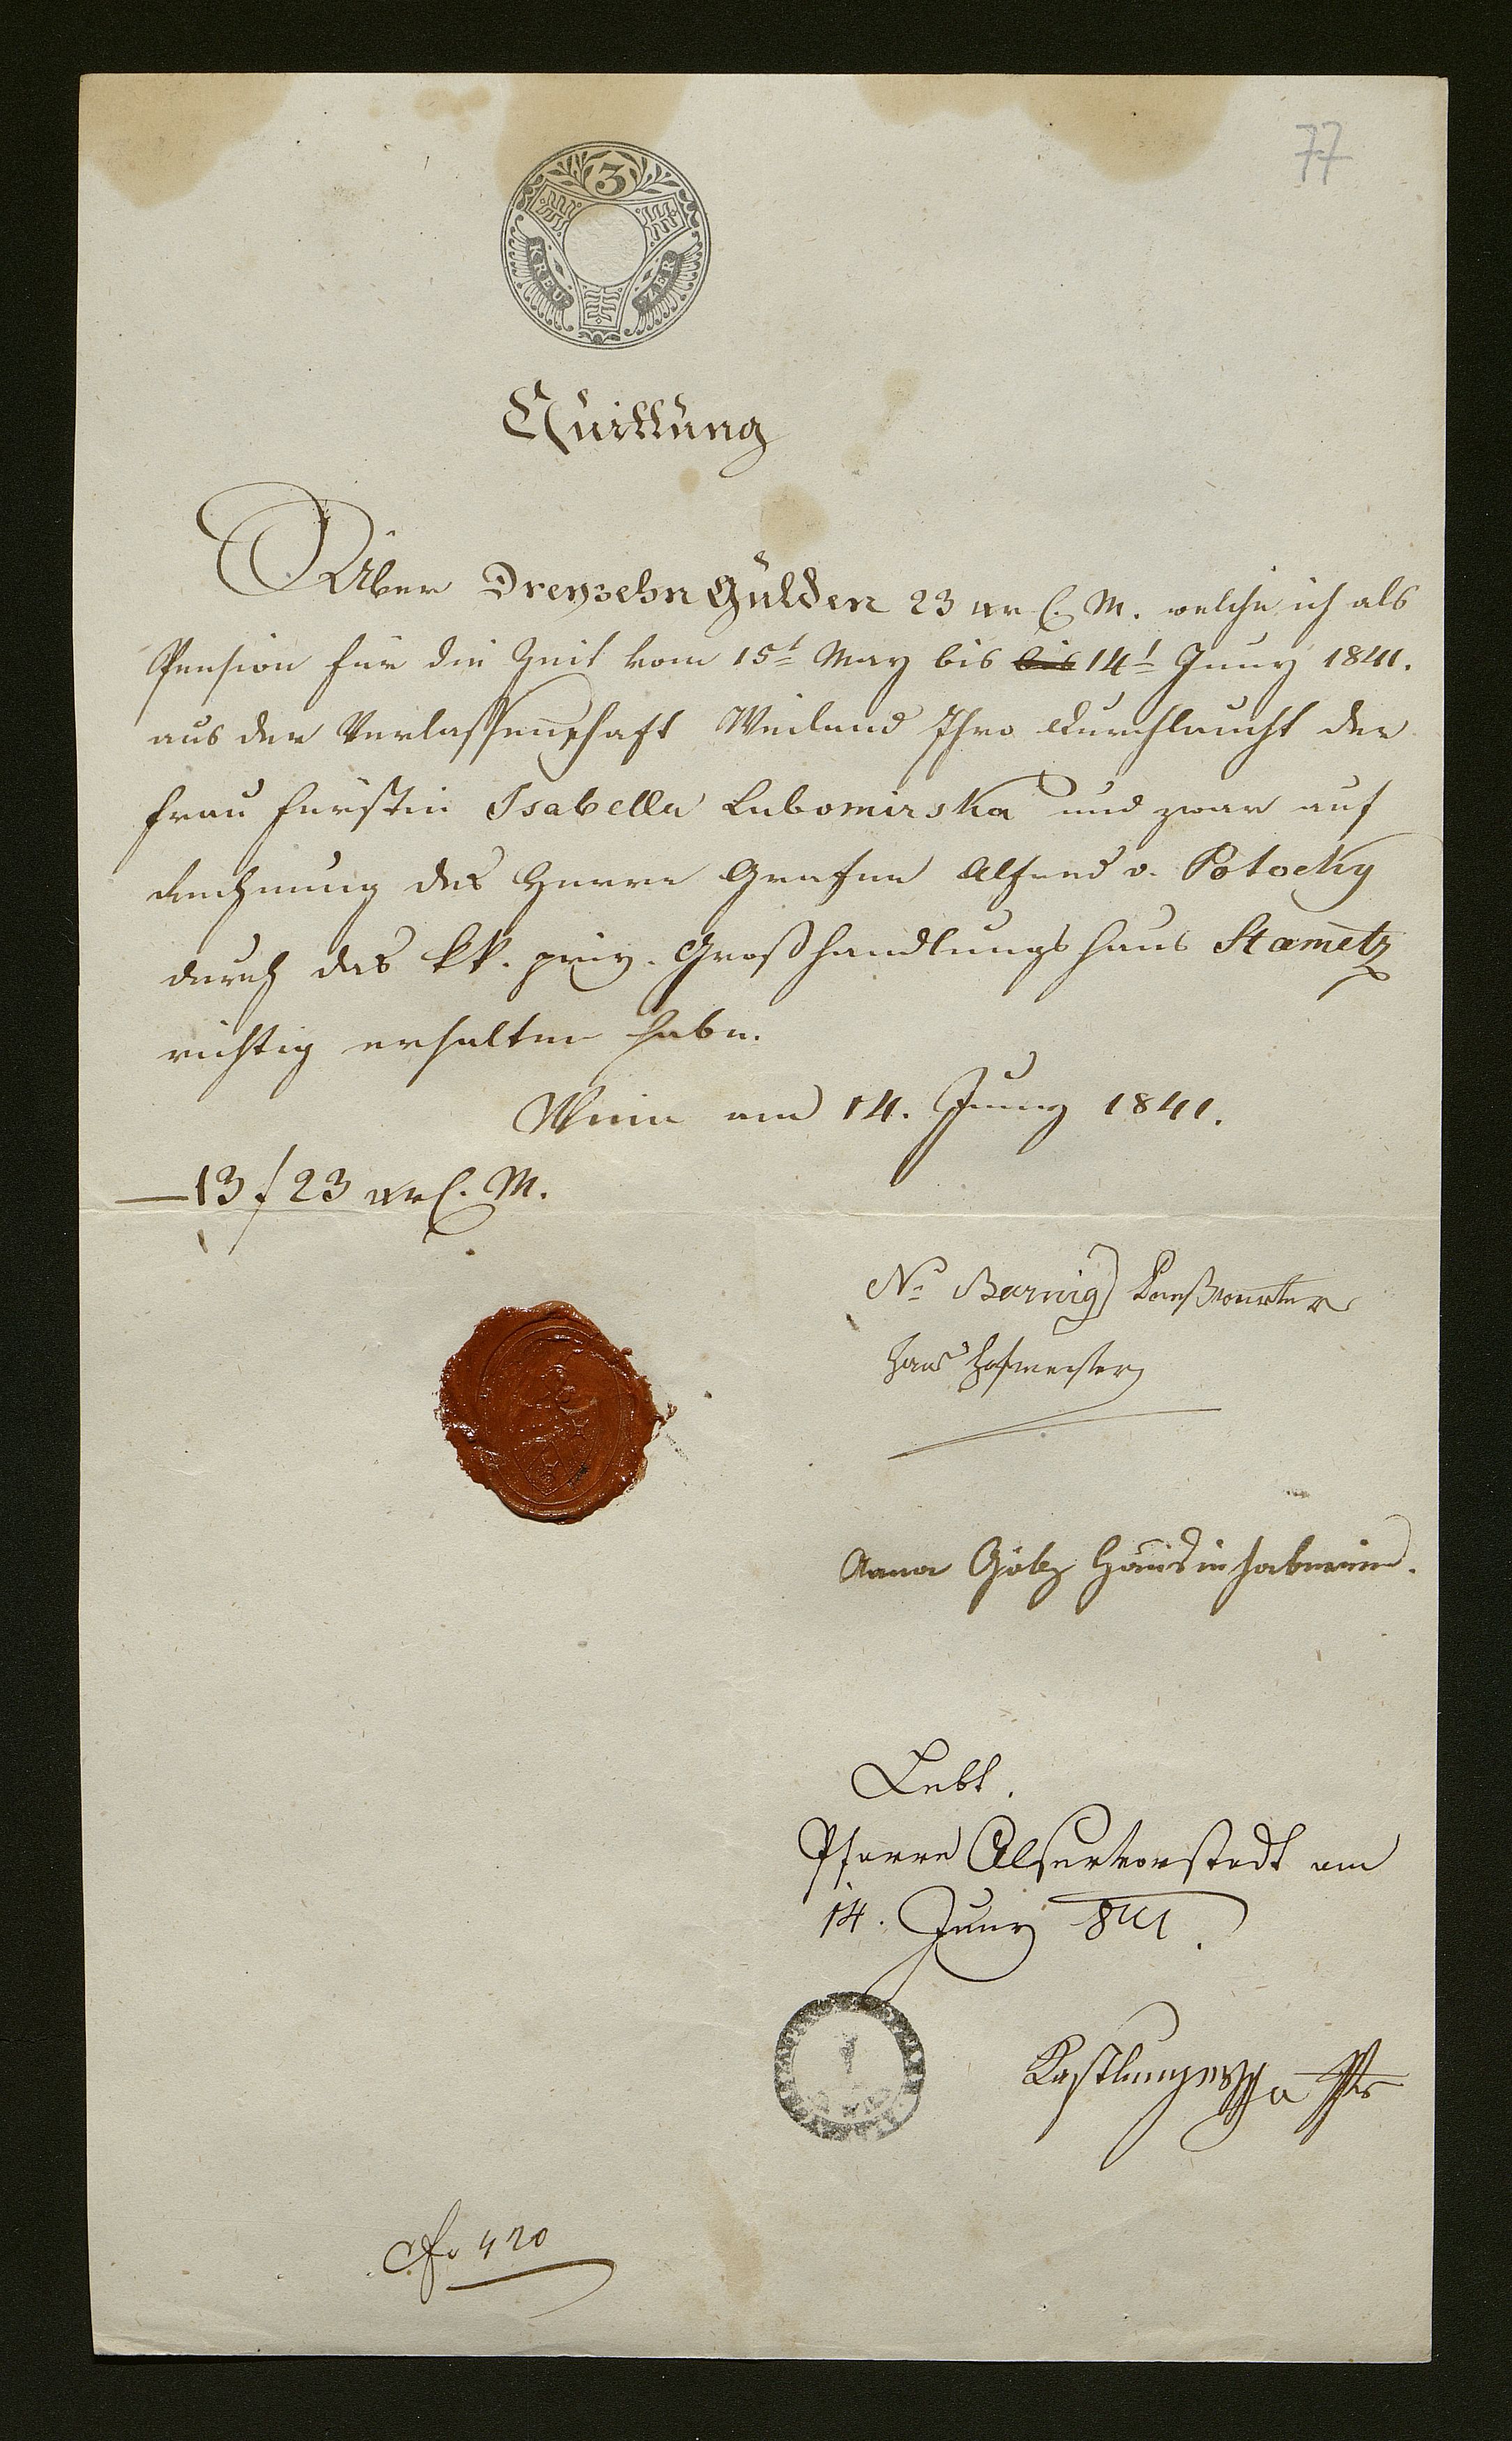 77
3
KREU ZER
Quittung
Über Dreyzehn Gulden 23 xr C. M. welche ich als
Pension für die Zeit vom 15t May bis bis 14t Juny 1841.
aus der Verlassenschaft Weiland Ihro Durchlaucht der
Frau Fürstin Isabella Lubomirska und zwar auf
Rechnung des Herrn Grafen Alfred v. Potocky
durch das kk. priv. Großhandlungshaus Stametz
richtig erhalten habe.
Wien am 14. Juny 1841.
13 f 23 xr C. M.
Haus Hofmeister
Anna Götz Hausinhaberin.
Lebt.
Pfarre Alservorstadt am
14. Juny 841.
420